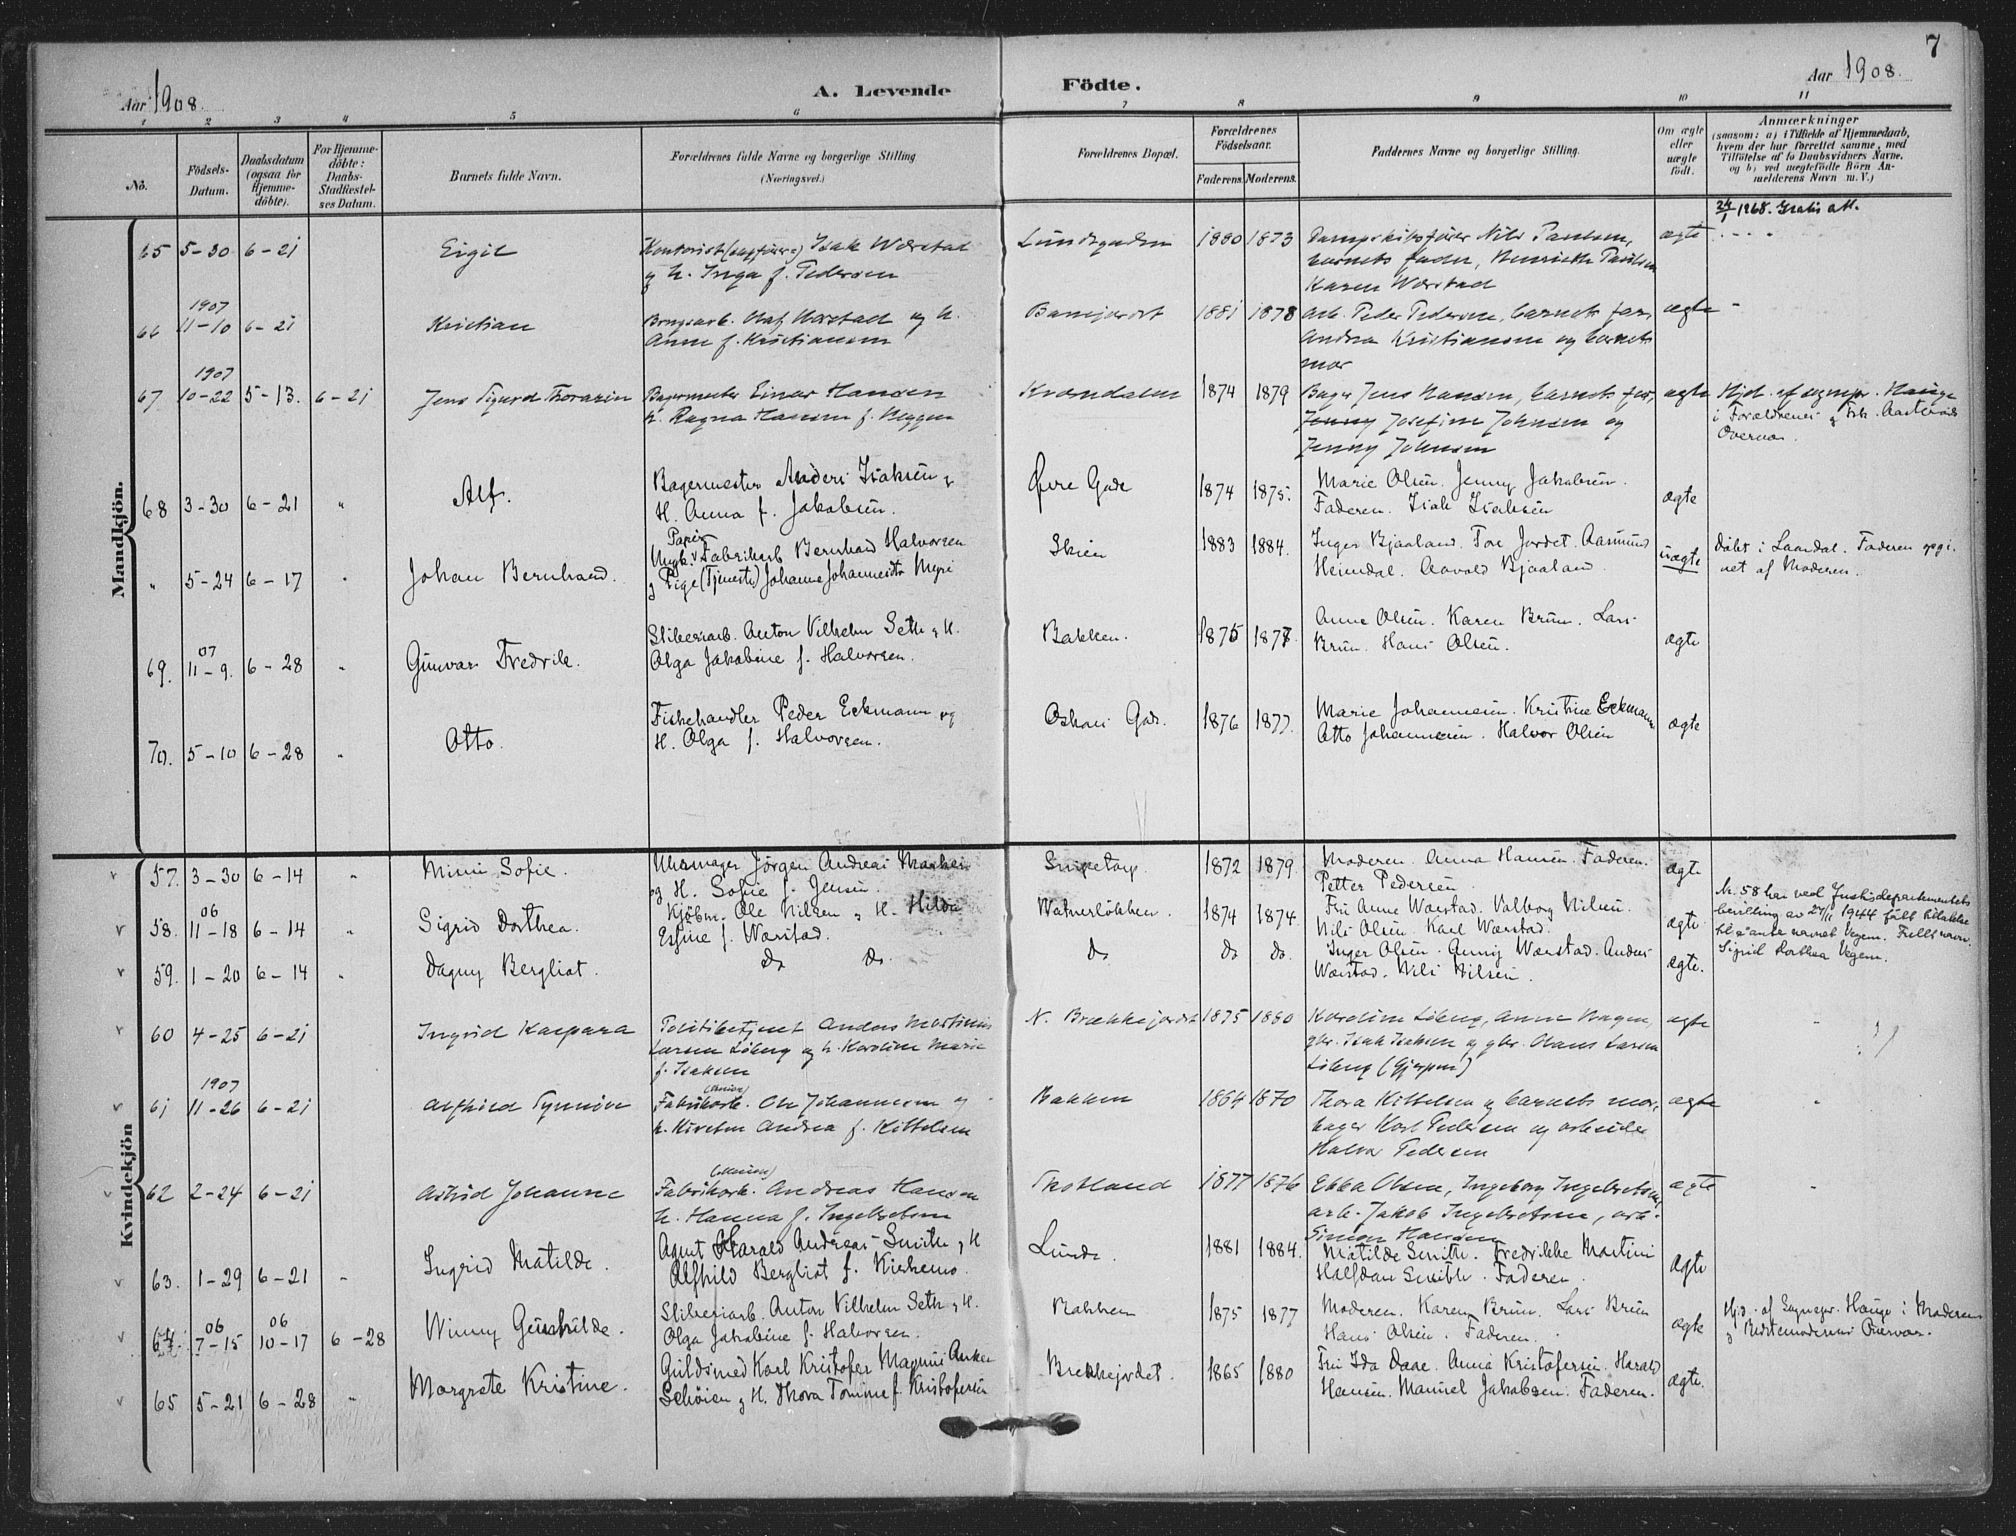 7
Aar 1908. A. Levende Födte. Aar 1908.
1 2 3 4 5 6 7 8 9 10 11
No. Födsels-Datum. Daabsdatum (ogsaa for Hjemme-döbte). For Hjemme-döbte: Daabs-Stadfæstel-ses Datum. Barnets fulde Navn. Forældrenes fulde Navne og borgerlige Stilling (Næringsvei.) Forældrenes Bopæl. Forældrenes Fødselsaar. Faderens. Moderens. Faddernes Navne og borgerlige Stilling. Om ægte eller uægte födt. Anmærkninger (saasom: a) i Tilfælde af Hjemmedaab, hvem der har forrettet samme, med Tilføielse af to Daabsvidners Navne, og b) ved uægtefödte Börn An-melderens Navn m. V.)
Mandkjön.
24/1 1968. Gratis att.
65 5-30 6-21 Eigil Kontorist Isak Værstad 1880 1873 Dampskibsfører Nils Paulsen, ægte
og h. Inga f. Pedersen barnets fader, Henriette Paulsen
Karen Værstad
1907
66 11-10 6-21 Kristian Brugsarb. Olaf Værstad og h. 1881 1878 Arb. Peder Pedersen, barnets far, ægte
Anne f. Kristiansen Andrea Kristiansen og barnets
mor
1907
67 10-22 5-13. 6-21 Jens Sigurd Thorazin Bagermester Einar Hansen Kverndalen 1874 1879 Bager Jens Hansen, barnets far, ægte Hjd. af sognepr. Hauge
h. Ragna Hansen f. Jenny Josefine Johnsen og i Forældrenes
Jenny Johnsen Overvær.
68 3-30 6-21 " Alf. Bagermester Anders Isaksen og Øvre Gade 1874 1875. Marie Olsen. Jenny Jakobsen. ægte
H. Anna f. Jakobsen. Faderen. Isak Isaksen
" 5-24 6-17 " Johan Bernhard. Papir Fabrikarb Bernhard Halvorsen Skien 1883 1884. Inger Bjaaland. Tor Jordet. Aasmund uægte Døbt i Laardal. Faderen opgi-
og Pige (Tjeneste) Johanne Johannesdtr Myri Heimdal. Aavald Bjaaland. vet af Moderen.
07
69. 11-9. 6-28 " Gunvar Fredrik. Sliberiarb. Anton Vilhelm Seth og H. Bakken. 1875 1877. Anne Olsen. Karen Brun. Lars ægte
Olga Jakobine f. Halvorsen. Brun. Hans Olsen.
70. 5-10 6-28 " Otto. Fiskehandler Peder Eckmann og Oskars Gad. 1876 1877. Marie Johannesen. Kristine Eckmann ægte
H. Olga f. Halvorsen. Otto Johannesen. Halvor Olsen
Kvindekjön
57. 3-30 6-14 " Mimi Sofie. Uhrmager Jörgen Andreas Snipetorp 1872 1879. Moderen. Anna Hansen. Faderen. ægte
og H. Sofie f. Jensen. Petter Pedersen.
06
58. 11-18 6-14 " Sigrid Dorthea. Kjøbm. Ole Nilsen og H. Hilda 1874 1874 Fru Anne Wærstad. Valborg Nilsen. ægte Nr. 58 har ved Justisdepartementets
f. Værstad. Nils Olsen. Karl Wærstad. bevilling av 27/11 1944 fått tillatelse
til å anta navnet Vegem. Fullt navn:
Sigrid Dorthea Vegem.
59. 1-20 6-14 " Dagny Bergliot. do do. do do do. Inger Olsen. Anny Wærstad. Anders ægte.
Wærstad. Nils Nilsen.
60 4-25 6-21 Ingrid Kaspara Politibetjent Anders Martinius N. Brækkejordet 1875 1880 Karoline Löberg, Anne Hagen, ægte "
Larsen Löberg og h. Karoline Marie gbr. Isak Isaksen og gbr. Claus Larsen
f. Isaksen Löberg (Gjerpen)
1907
61 11-26 6-21 Alfhild Synnöve Fabrikarb. (Union) Ole Johannesen og Bakken 1864 1870 Thora Kittelsen og barnets mor, ægte "
h. Andrea f. Kittelsen bager Karl Pedersen og arbeider
Halvor Pedersen
62 2-24 6-21 Astrid Johanne Fabrikarb. (Union) Andreas Hansen Skotland 1877 1876 Ebba Olsen, Ingeborg Ingebretsen, ægte "
h. Hanna f. Ingebretsen arb. Jakob Ingebretsen, arb.
Simon Hansen
63. 1-29 6-21 " Ingrid Matilde. Agent Harald Andreas Smith og H Lunde 1881 1884. Matilde Smith. Fredrikke Martini ægte
Alfhild Bergliot f. Halfdan Smith. Faderen.
06 06
64 7-15 10-17 6-28 Winny Gunhilde. Sliberiarb. Anton Vilhelm Seth og H. Bakken 1875 1877 Moderen. Karen Brun. Lars Brun ægte Hjd. af Sognepr. Hauge i Moderens
Olga Jakobine f. Halvorsen. Hans Olsen. Faderen. og Bedstemoderens Overvær.
65 5-21 6-28 " Margrete Kristine. Guldsmed Karl Kristofer Magnus Anker Brekkejordet. 1865 1880 Fru Ida Daae. Anna Kristofersen. Harald ægte.
Schöien og H. Thora Tomine f. Kristofersen Hansen. Manuel Jakobsen. Faderen.